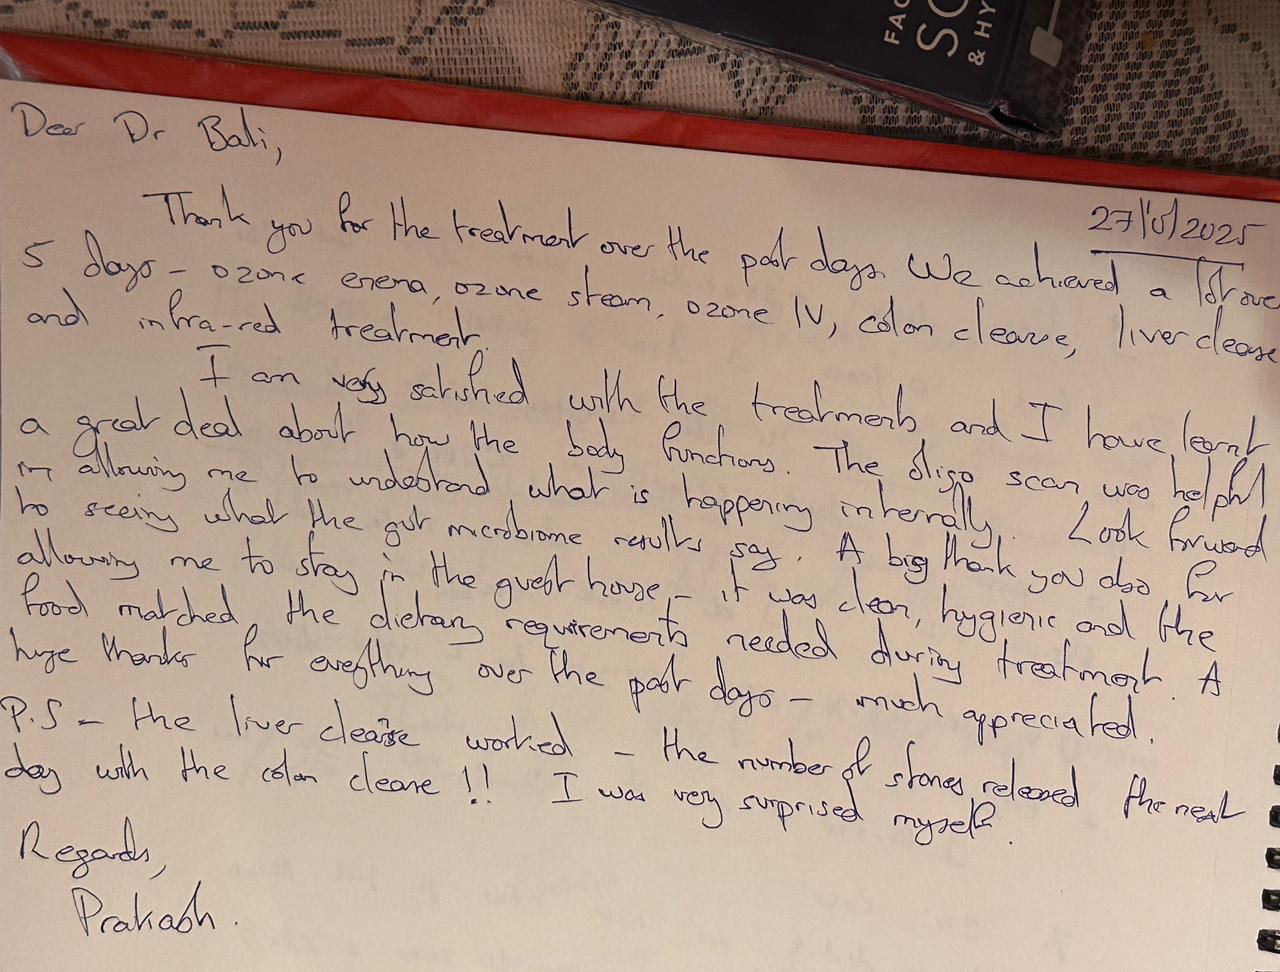 FAC
SC
& HY
Dear Dr Bali,
27/10/2025
Thank you for the treatment over the past days. We achieved a lot over
5 days - ozone enema, ozone steam, ozone IV, colon cleanse, liver clease
and infra-red treatment.
I am very satisfied with the treatments and I have learnt
a great deal about how the body functions. The oligo scan was helpful
in allowing me to undestand what is happening internally. Look forward
to seeing what the gut microbiome results say. A big thank you also for
allowing me to stay in the guest house - it was clean, hygienic and the
food matched the dietary requirements needed during treatment. A
huge thanks for everything over the past days - much appreciated.
P.S - the liver cleanse worked - the number of stones released the next
day with the colon cleanse !! I was very surprised myself.
Regards,
Prakash.